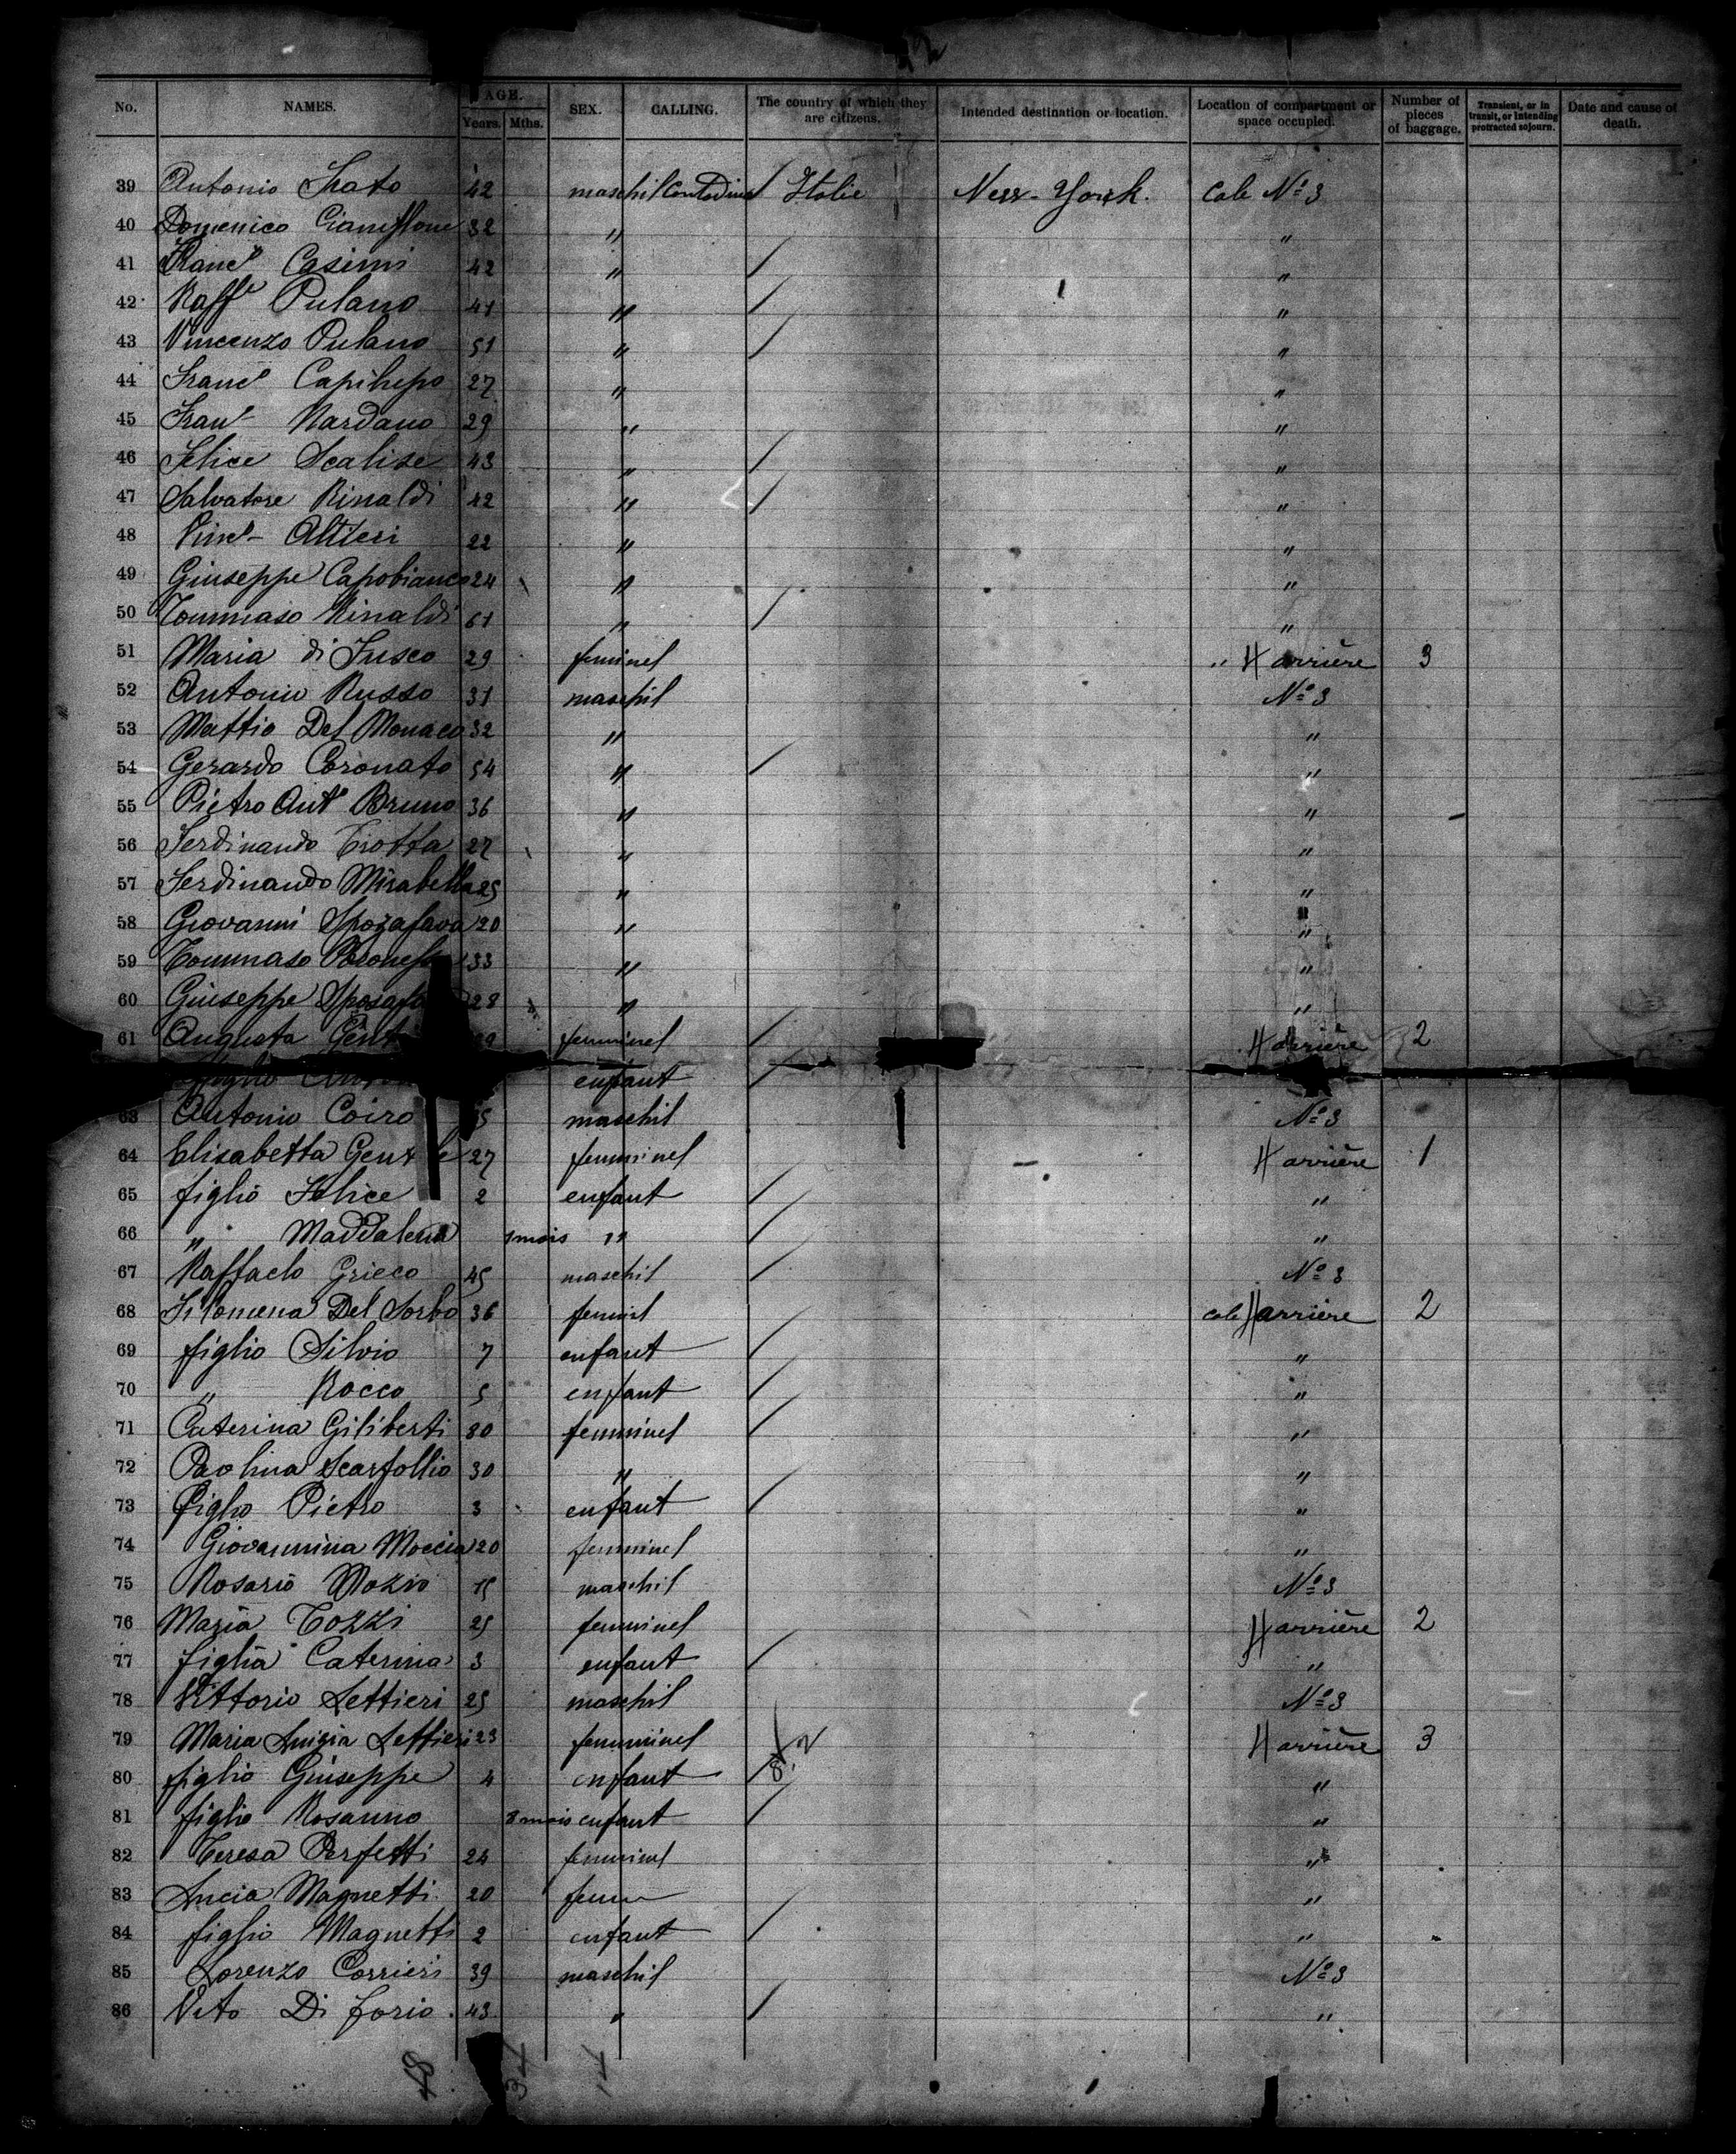 No. NAMES. AGE. Years. Mths. SEX. CALLING. The country of which they are citizens. Intended destination or location. Location of compartment or space occupied. Number of pieces of baggage. Transient, or in transit, or intending protracted sojourn. Date and cause of death.
39 Antonio 42 maschil Contadino Italie New-York. Cale No 3
40 Domenico 32 " "
41 Franco Casimi 42 " "
42 Raffe Pulano 41 " "
43 Vincenzo Pulano 51 " "
44 Franco 27 " "
45 Fran Nardano 29 " "
46 Felice Scalise 43 " "
47 Salvatore Rinaldi 42 " "
48 Altieri 22 " "
49 Giuseppe Capobianco 24 " "
50 Tommaso Rinaldi 61 " "
51 Maria di Fusco 29 feminel " Harrière 3
52 Antonio Russo 31 maschil No 3
53 Mattio Del Monaco 32 " "
54 Gerardo Coronato 54 " "
55 Pietro Anto Bruno 36 " "
56 Ferdinando Trotta 27 " "
57 Ferdinando Mirabella 25 " "
58 Giovanni 20 " "
59 Tommaso 33 " "
60 Giuseppe 28 " "
61 Augusta feminel Harrière 2
figlio enfant
63 Antonio Coiro maschil No 3
64 Elisabetta 27 femminel Harrière 1
65 figlio Felice 2 enfant "
66 " Maddalena 1 mois " "
67 Raffaelo Grieco 45 maschil No 3
68 Filomena Del Sorbo 36 feminl cale Harrière 2
69 figlio Silvio 7 enfant "
70 " Rocco 5 enfant "
71 Caterina Giliberti 30 femminel "
72 Paolina Scarfollio 30 " "
73 figlio Pietro 3 enfant "
74 Giovannina Moccia 20 femminel "
75 Rosario 15 maschil No 3
76 Maria Tozzi 25 femminel Harrière 2
77 figlia Caterina 3 enfant "
78 Vittorio Lettieri 25 maschil No 3
79 Maria Luigia Lettieri 23 femminel Harrière 3
80 figlio Giuseppe 4 enfant "
81 figlio Rosanno 8 mois enfant "
82 Teresa Perfetti 24 femminel "
83 Lucia Magnetti 20 femm "
84 figlio Magnetti 2 enfant "
85 Lorenzo Corrieri 39 maschil No 3
86 Vito Di Jorio. 43 " "
48 34 14